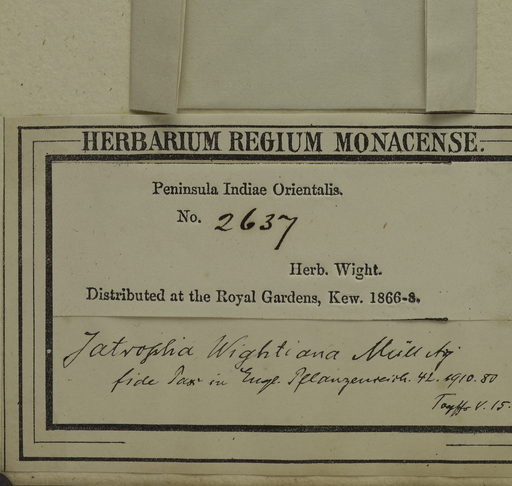 HERBARIUM REGIUM MONACENSE.
Peninsula Indiae Orientalis.
No. 2637
Herb. Wight.
Distributed at the Royal Gardens, Kew. 1866-8.
Jatropha Wightiana Müll Arg
fide Pax in Engl. Pflanzenreich. 42. 1910. 80
V. 15.